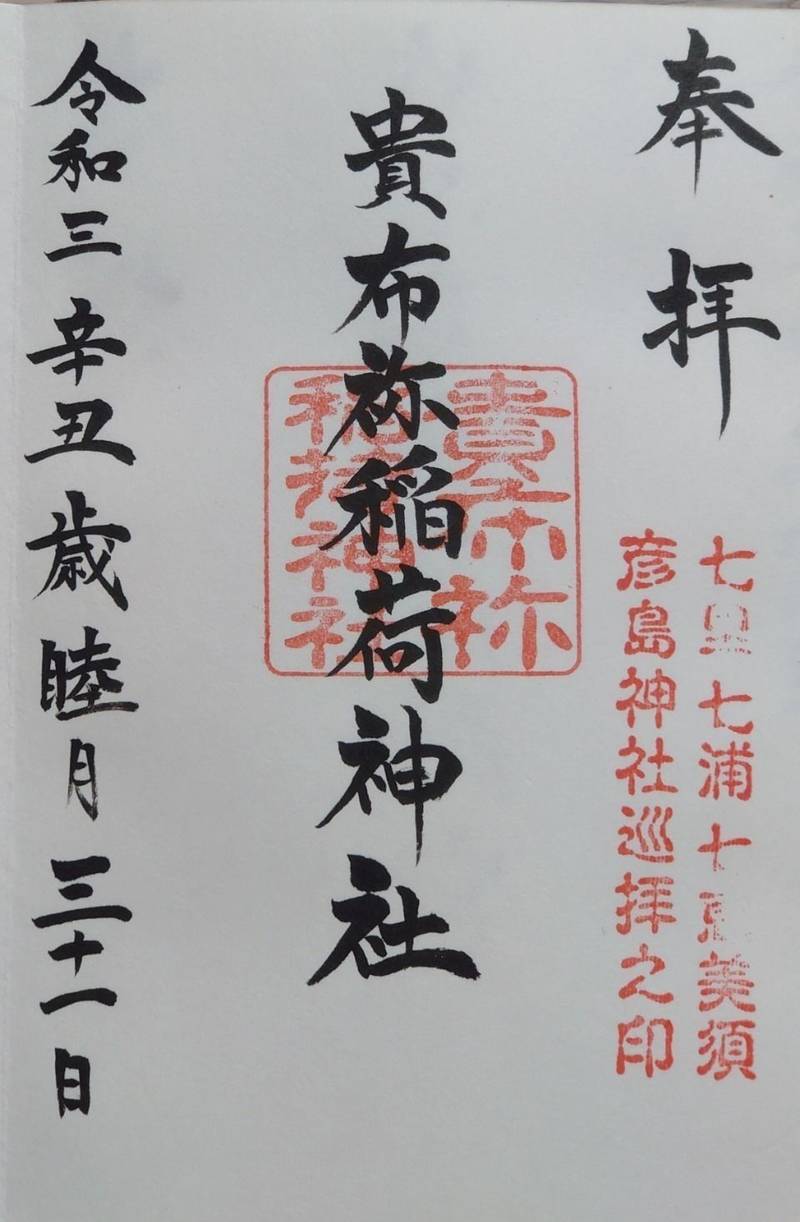 奉拝
七里七浦十恵美須
彦島神社巡拝之印
貴布祢稲荷神社
貴布祢
稲荷神社
令和三辛丑歳睦月三十一日